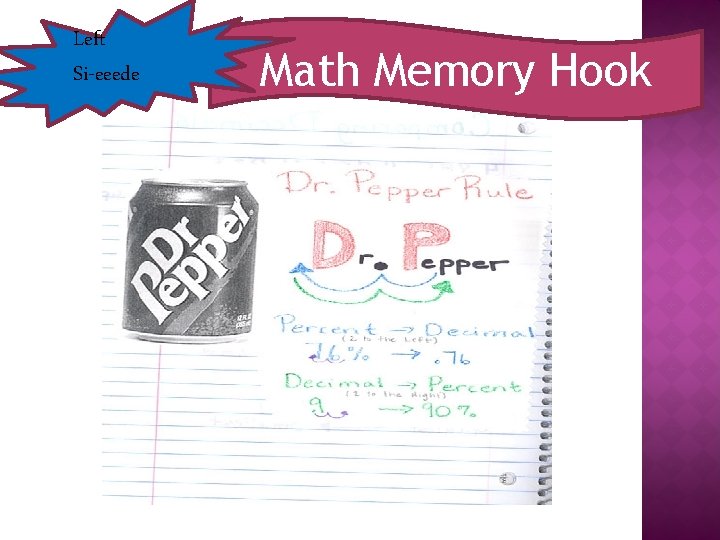 Left
Si-eeede
Math Memory Hook
Dr. Pepper Rule
Dr
Pepper
Dr. Pepper
Percent → Decimal
(2 to the Left)
76% → .76
Decimal → Percent
(2 to the Right)
.9 → 90%